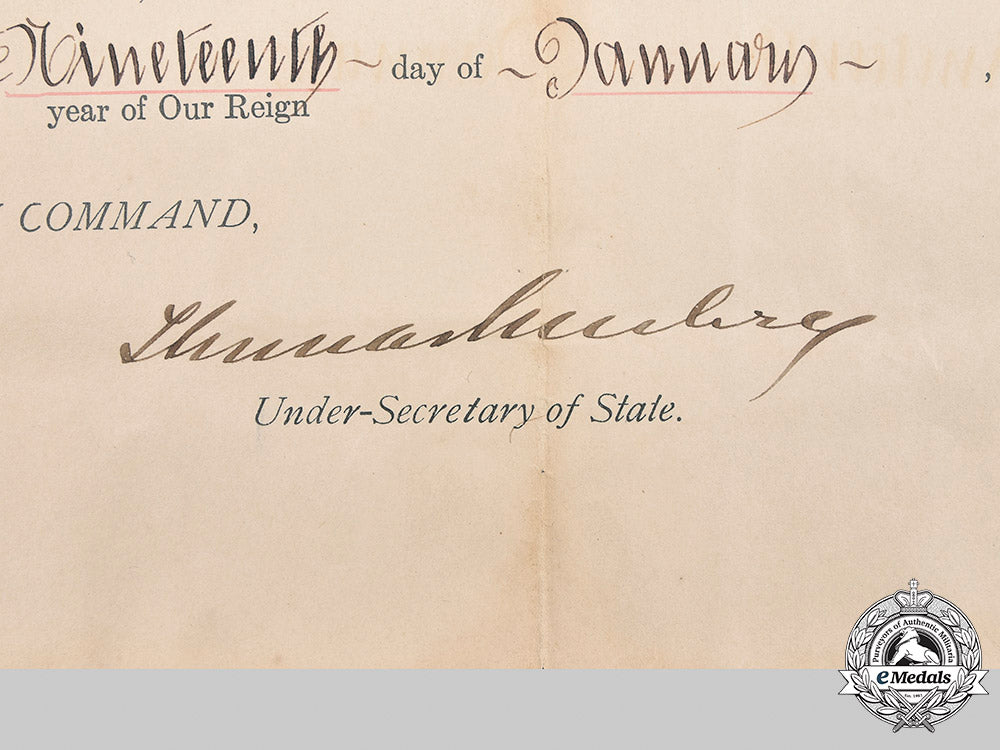 Nineteenth ~ day of ~ January ~ ,
year of Our Reign
COMMAND,
Thomas Mulvey
Under-Secretary of State.
Purveyors of Authentic Militaria
eMedals